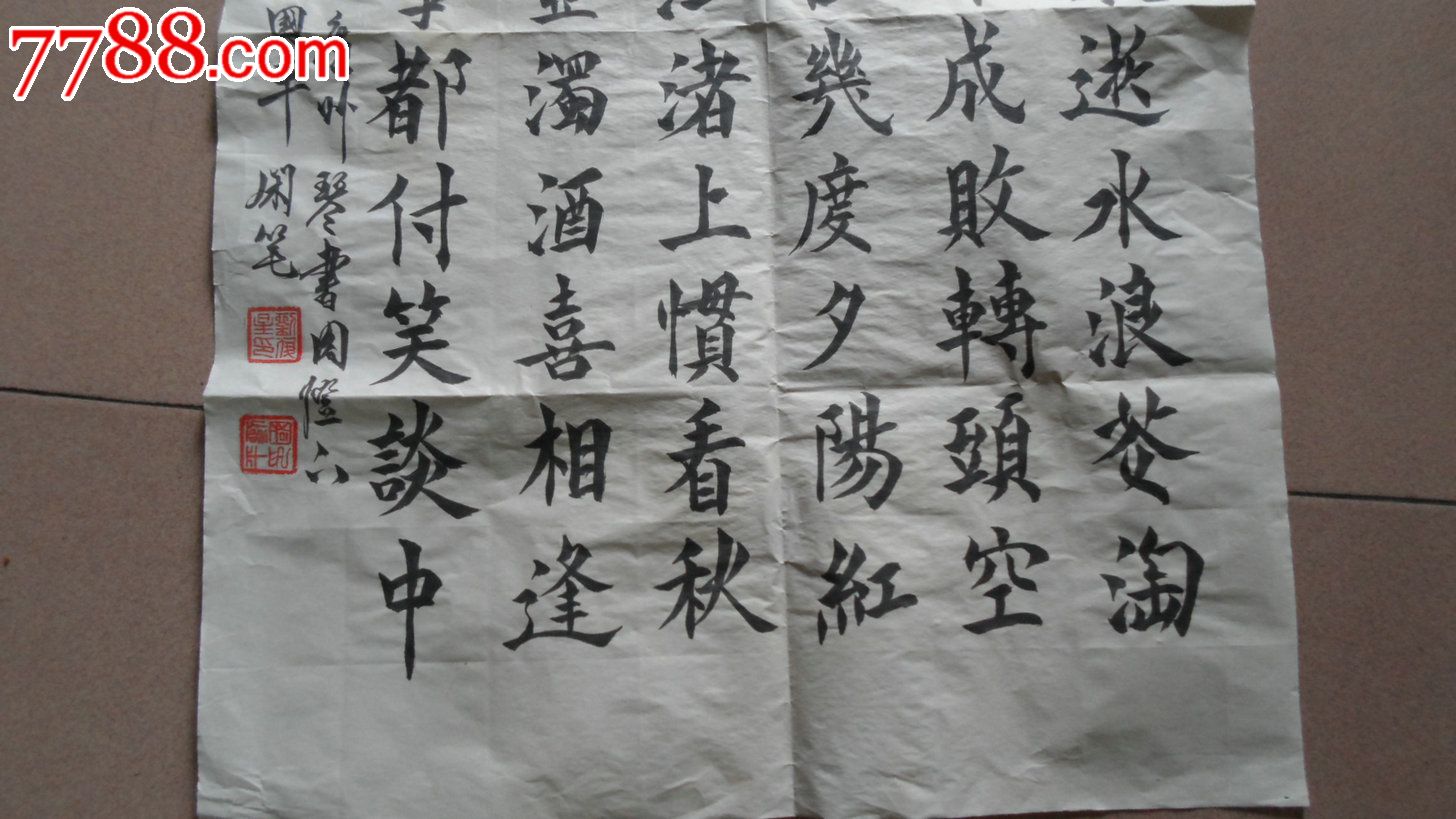 7788.com
逝水浪花淘
成敗轉頭空
幾度夕陽紅
渚上慣看秋
濁酒喜相逢
都付笑談中
卯 琴書
笔